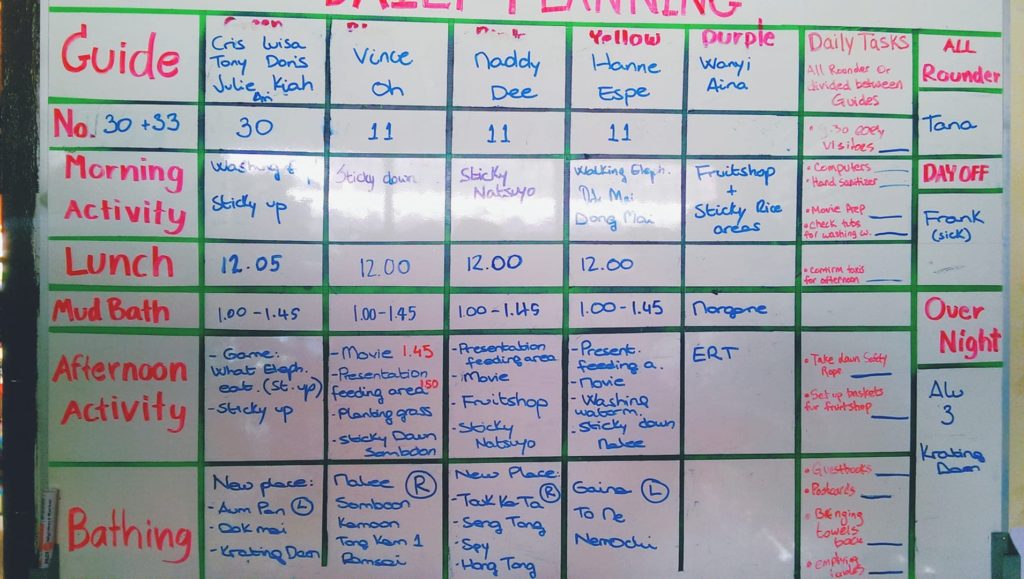 DAILY PLANNING
Guide
Cris Luisa
Tony Doris
Julie Kiah
Ari
Vince
Oh
Naddy
Dee
Yellow
Hanne
Espe
Purple
Wanyi
Aina
Daily Tasks
All Rounder Or
divided between
Guides
ALL
Rounder
No. 30 +33
30
11
11
11
visitors
Tana
Morning
Activity
Washing &
Sticky up
Sticky down
Sticky
Natsuyo
Walking Eleph.
Mai
Dong Mai
Fruitshop
+
Sticky Rice
areas
• Computers
• Hand sanitizer
• Movie Prep
• Check tubs
for washing w.
DAY OFF
Frank
(sick)
Lunch
12.05
12.00
12.00
12.00
• Confirm taxis
for afternoon
Mud Bath
1.00-1.45
1.00-1.45
1.00-1.45
1.00-1.45
Over
Night
Afternoon
Activity
- Game:
What Eleph.
eat. (St. up)
- Sticky up
- Movie 1.45
- Presentation
feeding area 1.50
- Planting grass
- Sticky Down
Somboon
- Presentation
feeding area
- Movie
- Fruitshop
- Sticky
Natsuyo
- Present.
feeding a.
- Movie
- Washing
waterm.
- Sticky down
Malee
ERT
• Take down Safety
Rope
• Set up baskets
for fruitshop
3
Krating
Daen
Bathing
New place:
- Aum Pan L
- Dok mai
- Krating Daen
Malee R
Somboon
Kamoon
Tong Kam 1
Ramsai
New Place:
- Tauk Ka Ta R
- Seng Tong
- Spy
- Hong Tong
L
• Guestbooks
• Postcards
• Bringing
towels
back
• emptying